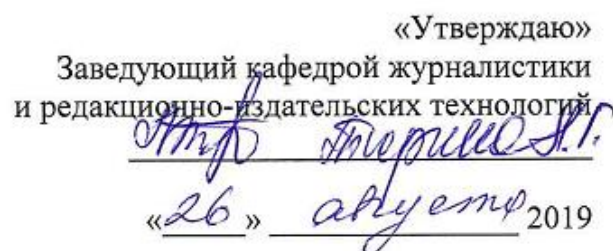 «Утверждаю»
Заведующий кафедрой журналистики
и редакционно-издательских технологий
«26» августа 2019